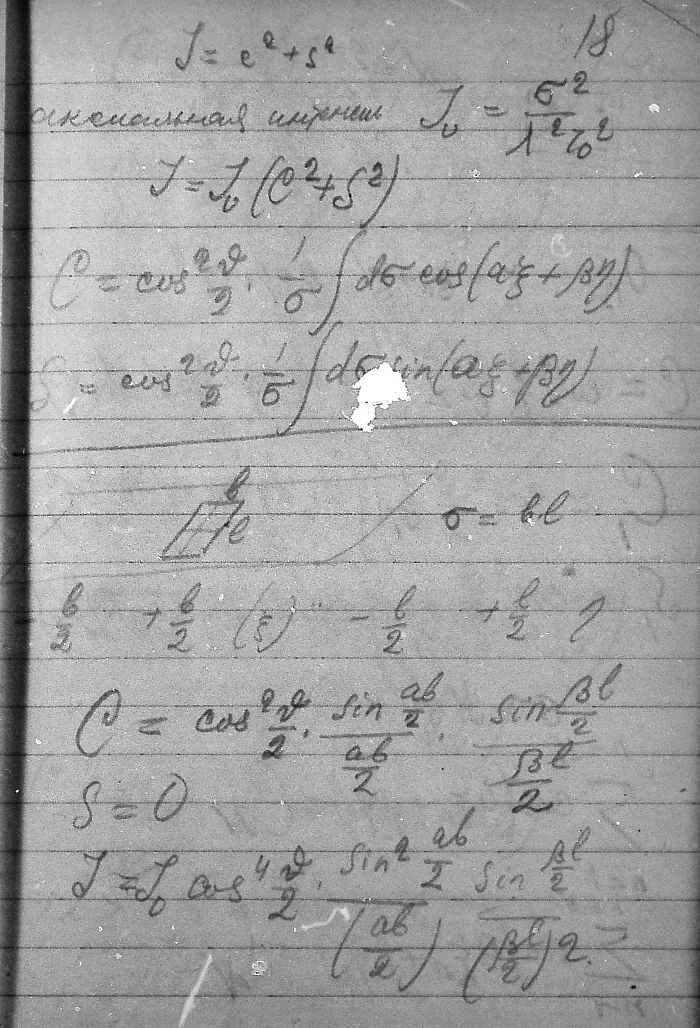 18
J = c² + s²
аксиальная J₀ = σ² / λ² r₀²
J = J₀ (C² + S²)
C = cos² ϑ/2 · 1/σ ∫ dσ cos(αξ + βη)
S = cos² ϑ/2 · 1/σ ∫ dσ sin(αξ + βη)
b
l
σ = bl
- b/2 + b/2 (ξ) - l/2 + l/2 η
C = cos² ϑ/2 · sin αb/2 / αb/2 · sin βl/2 / βl/2
S = 0
J = J₀ cos⁴ ϑ/2 · sin² αb/2 / (αb/2) sin βl/2 / (βl/2)²